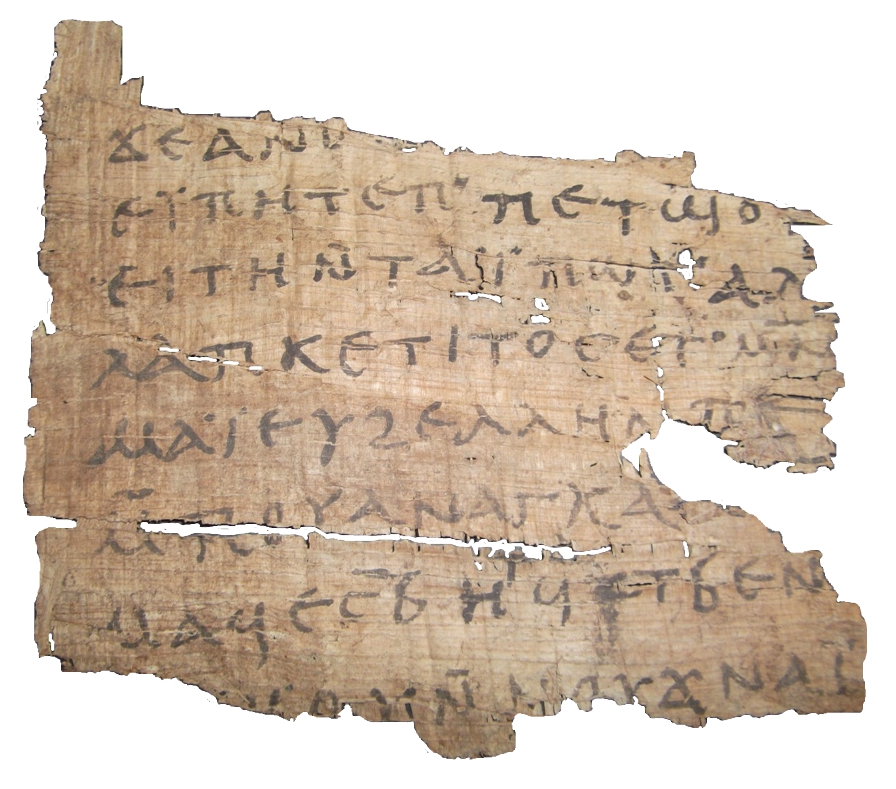 ϫⲉⲁⲛ
ⲉⲓ̈ⲡⲏⲧⲉⲡ ⲡⲉⲧϣⲟ
ⲉⲓⲧⲏ ⲛ̄ⲧⲁⲓ̈ⲡⲱⲧ ⲁⲗ
ⲗⲁⲡⲕⲉⲧⲓⲧⲟⲥⲉⲧⲙⲛ
ⲙⲁⲓ̈ⲉⲩϩⲉⲗⲗⲏⲛ ⲡⲉ
ⲙ̄ⲡⲟⲩⲁⲛⲁⲅⲕⲁ
ⲙⲁϥⲉⲥ̄ⲃ̄ⲏⲧϥⲉⲧⲃⲉⲛ
ⲟⲩⲛ̄ⲛⲟⲩϫⲛⲁⲓ̈